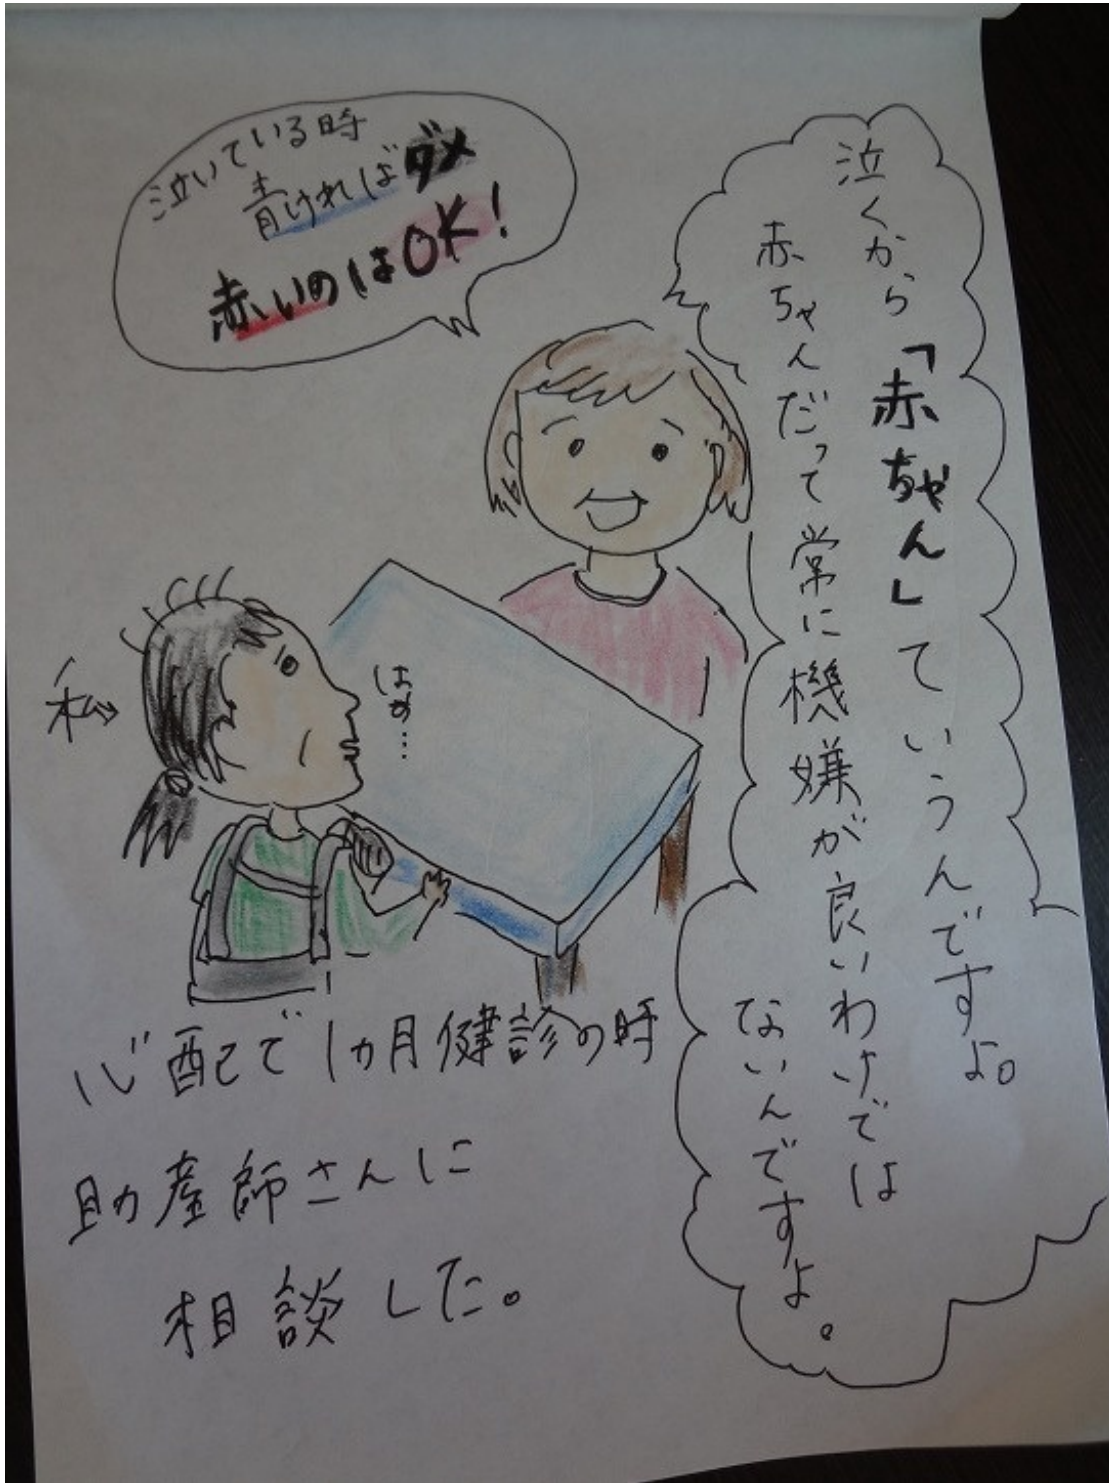 泣くから「赤ちゃん」ていうんですよ。
赤ちゃんだって常に機嫌が良いわけでは
ないんですよ。
泣いている時
青ければダメ
赤いのはOK!
はぁ…
私→
心配で1ヵ月健診の時
助産師さんに
相談した。